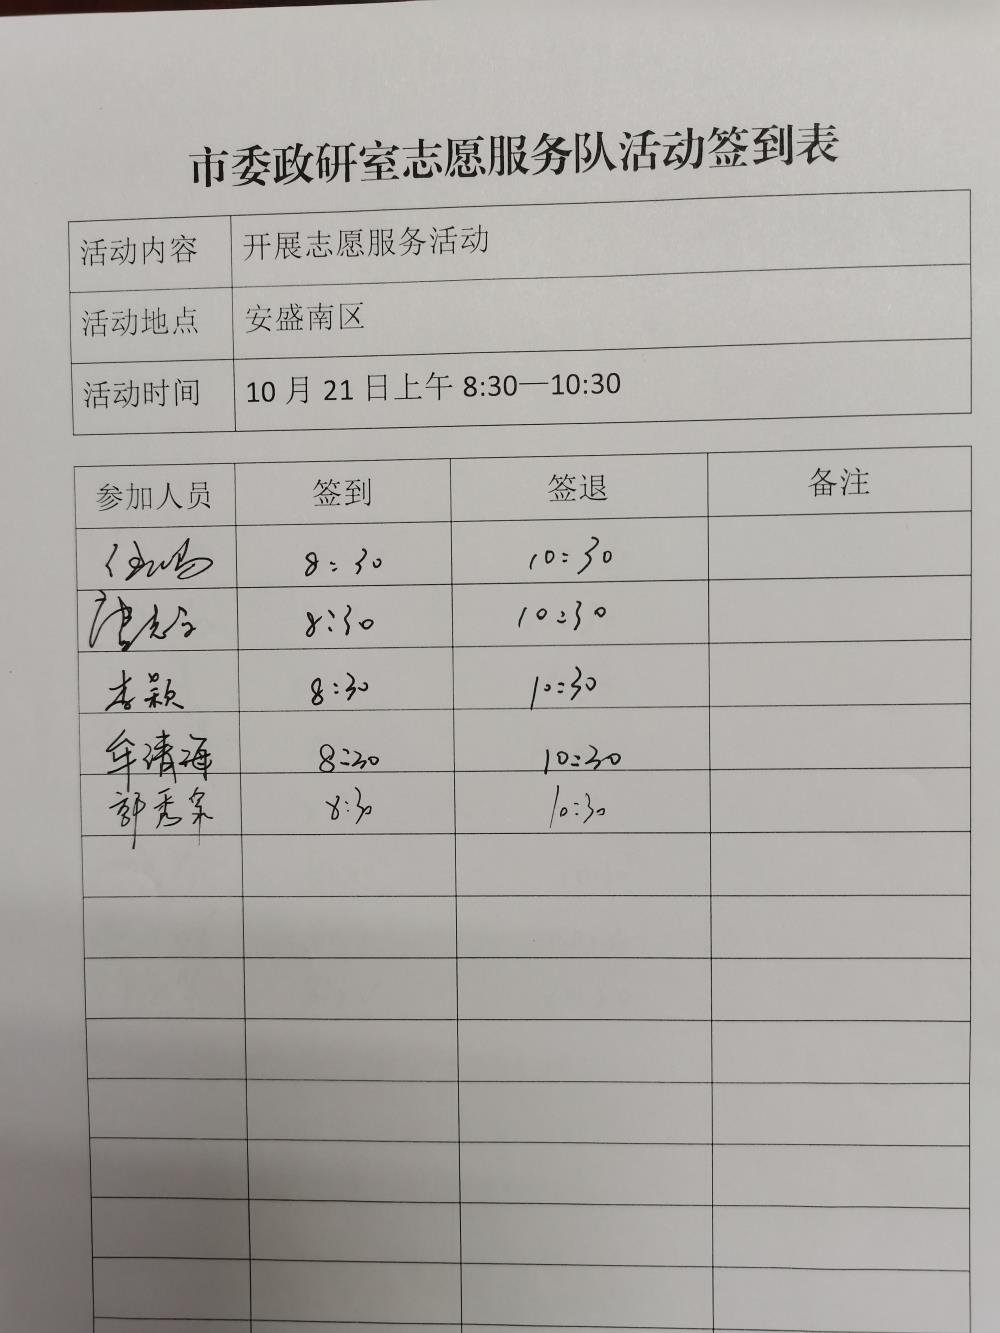 市委政研室志愿服务队活动签到表
活动内容 开展志愿服务活动
活动地点 安盛南区
活动时间 10月21日上午8:30—10:30
参加人员 签到 签退 备注
8:30 10:30
8:30 10:30
李颖 8:30 10:30
牟清海 8:30 10:30
郭秀 8:30 10:30